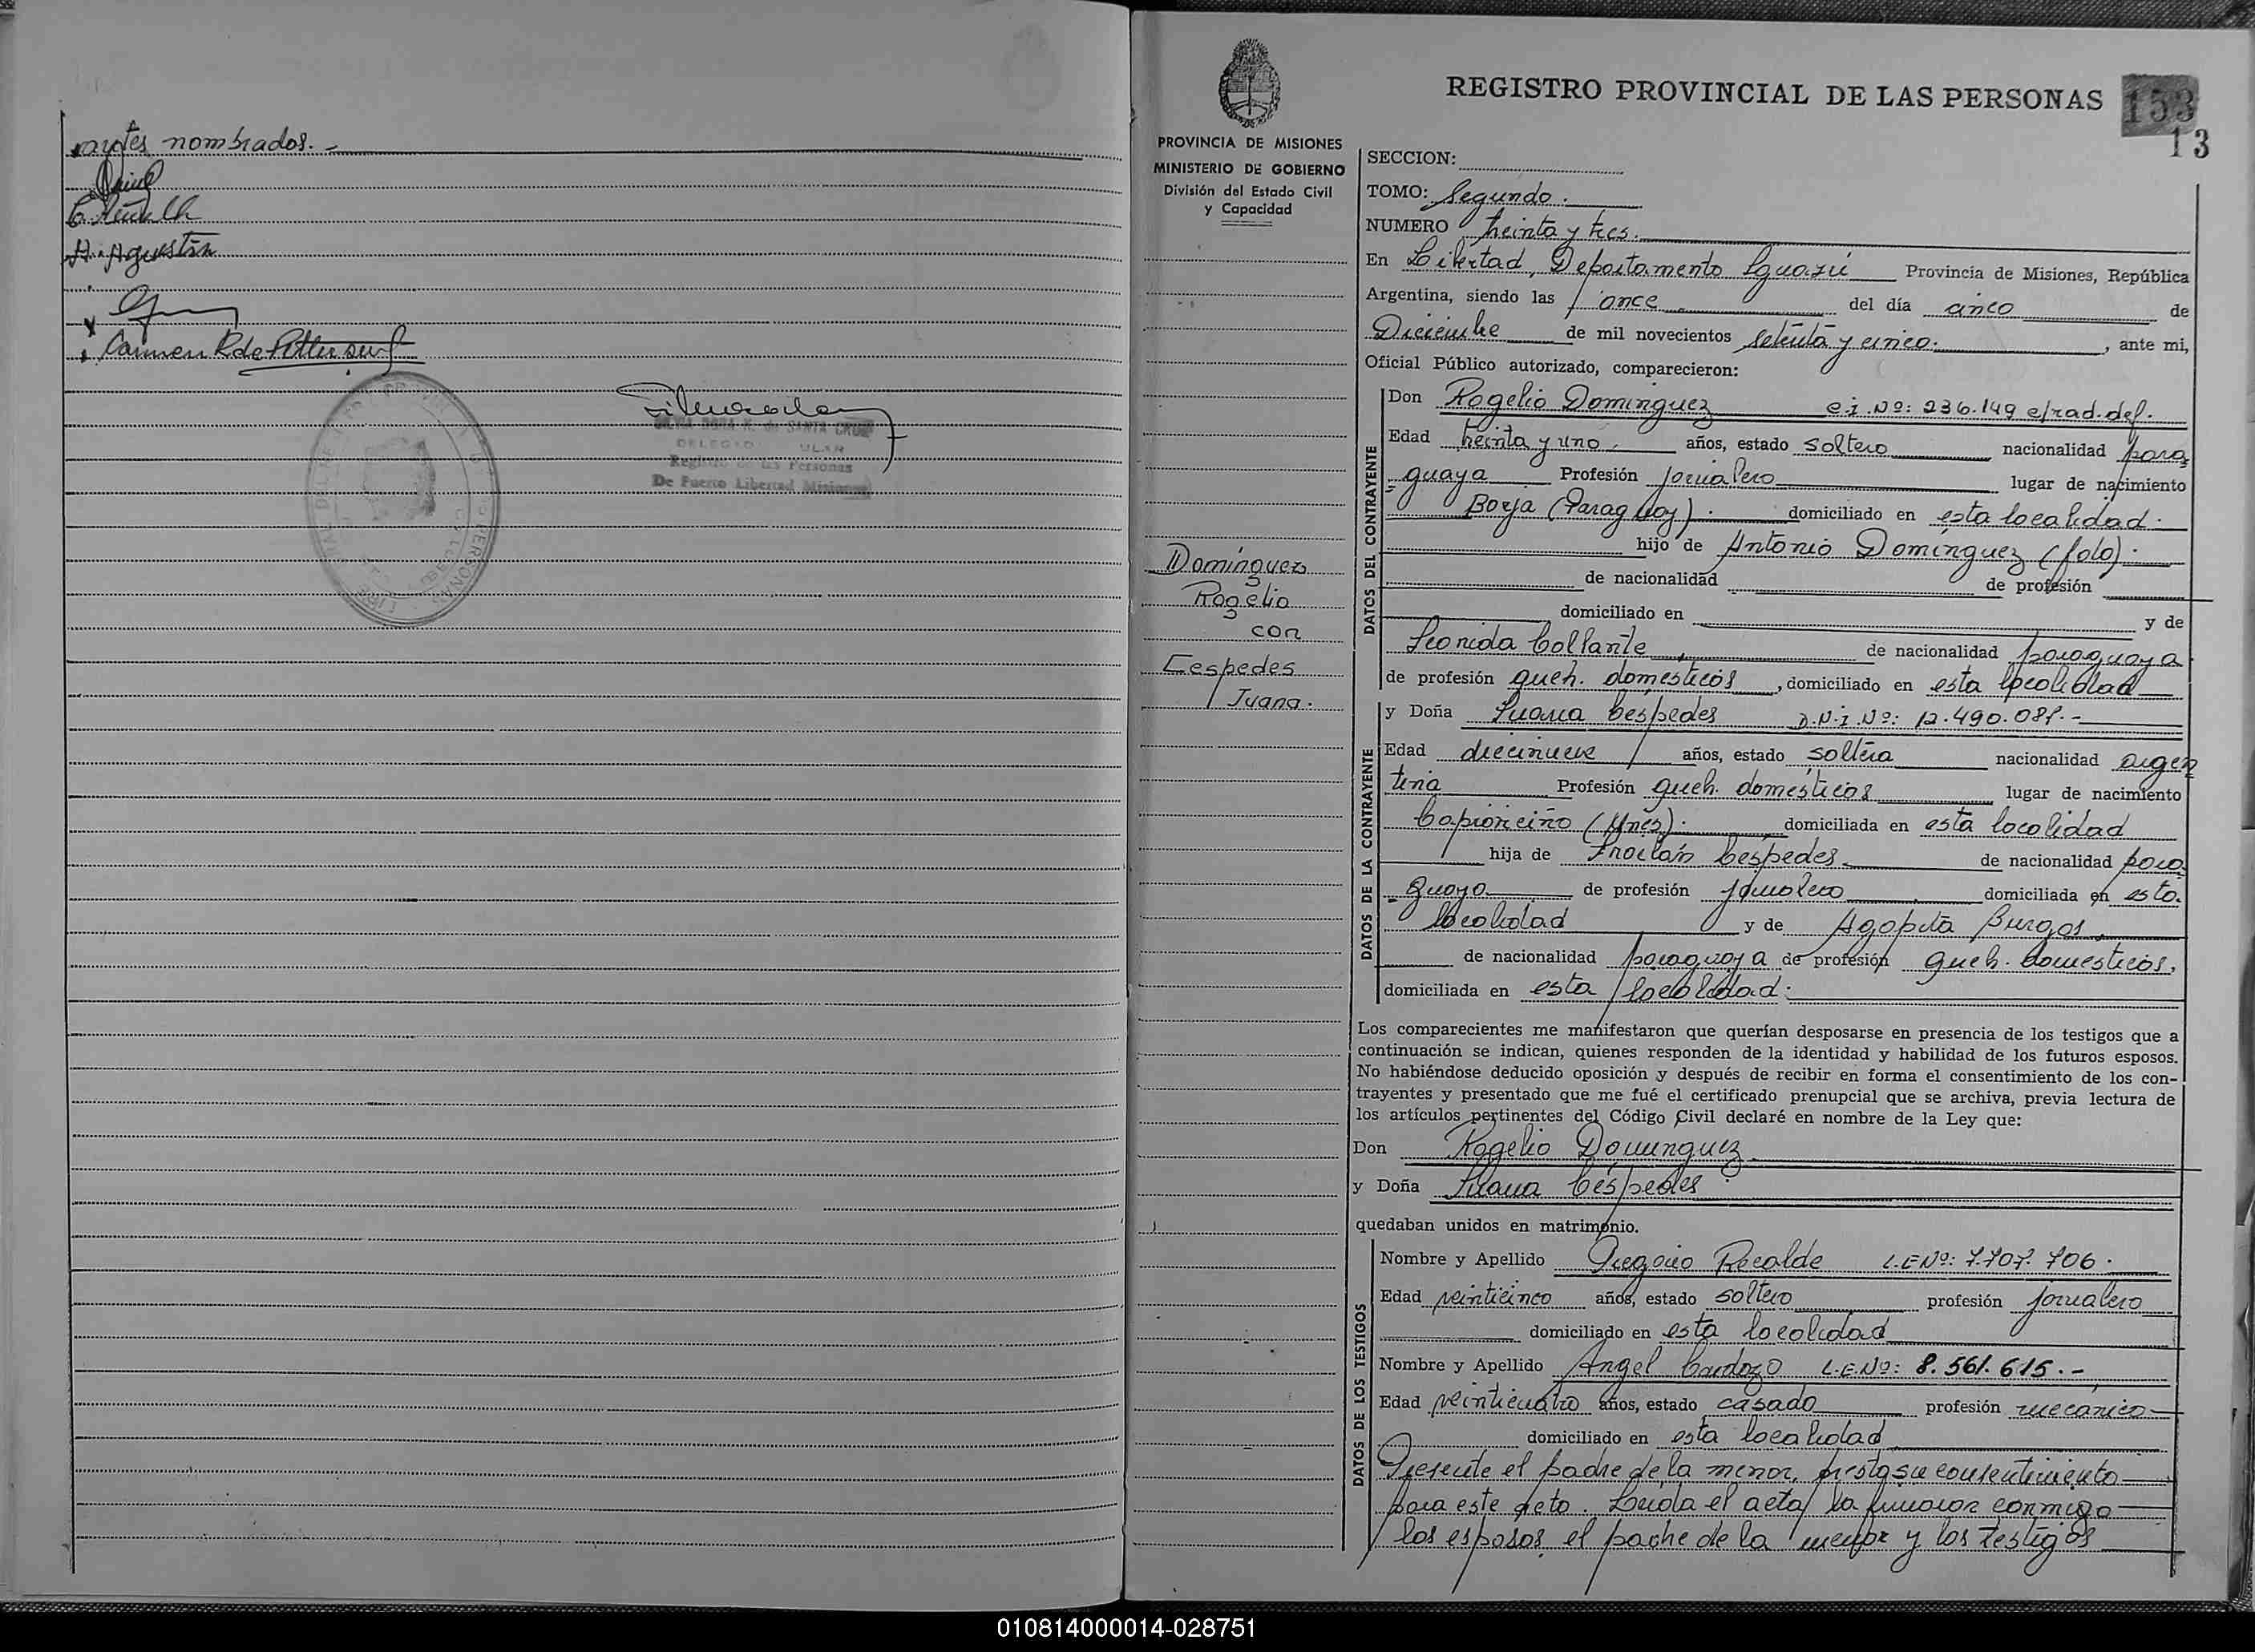 antes nombrados.-
A. Agustín
Carmen R de
SILVIA DORA K. de SANTA CRUZ
Registro de las Personas
De Puerto Libertad Misiones
REGISTRO PROVINCIAL DE LAS PERSONAS
153
13
PROVINCIA DE MISIONES
MINISTERIO DE GOBIERNO
División del Estado Civil
y Capacidad
Domínguez
Rogelio
con
Cespedes
Juana.
SECCION:
TOMO: Segundo.
NUMERO treinta y tres.
En Libertad, Departamento Iguazú Provincia de Misiones, República
Argentina, siendo las once del día cinco de
Diciembre de mil novecientos setenta y cinco. , ante mi,
Oficial Público autorizado, comparecieron:
DATOS DEL CONTRAYENTE
Don Rogelio Dominguez c.i. Nº: 236.149 c/rad.def.
Edad treinta y uno. años, estado soltero nacionalidad para
guaya Profesión jornalero lugar de nacimiento
Borja (Paraguay). domiciliado en esta localidad.
hijo de Antonio Domínguez (fdo).
de nacionalidad de profesión
domiciliado en y de
Leonida Collante, de nacionalidad paraguaya
de profesión queh. domésticos , domiciliado en esta localidad
DATOS DE LA CONTRAYENTE
y Doña Juana Céspedes D.N.i. Nº: 12.490.081.-
Edad diecinueve años, estado soltera nacionalidad argen
tina Profesión queh. domésticos lugar de nacimiento
Capioviciño (Mnes). domiciliada en esta localidad
hija de Froilán Céspedes de nacionalidad para
guaya de profesión jornalero domiciliada en esta
localidad y de Agapita Burgos,
de nacionalidad paraguaya de profesión queh. domésticos,
domiciliada en esta localidad.
Los comparecientes me manifestaron que querían desposarse en presencia de los testigos que a
continuación se indican, quienes responden de la identidad y habilidad de los futuros esposos.
No habiéndose deducido oposición y después de recibir en forma el consentimiento de los con-
trayentes y presentado que me fué el certificado prenupcial que se archiva, previa lectura de
los artículos pertinentes del Código Civil declaré en nombre de la Ley que:
Don Rogelio Dominguez
y Doña Juana Céspedes
quedaban unidos en matrimonio.
DATOS DE LOS TESTIGOS
Nombre y Apellido Gregorio Recalde L.E Nº: 7.707.706.
Edad veinticinco años, estado soltero profesión jornalero
domiciliado en esta localidad
Nombre y Apellido Angel Cardozo L.E. Nº: 8.561.615.-
Edad veinticuatro años, estado casado profesión mecanico
domiciliado en esta localidad
Presente el padre de la menor, presta su consentimiento
para este acto. Leída el acta, la firman conmigo
los esposos, el padre de la menor y los testigos
010814000014-028751